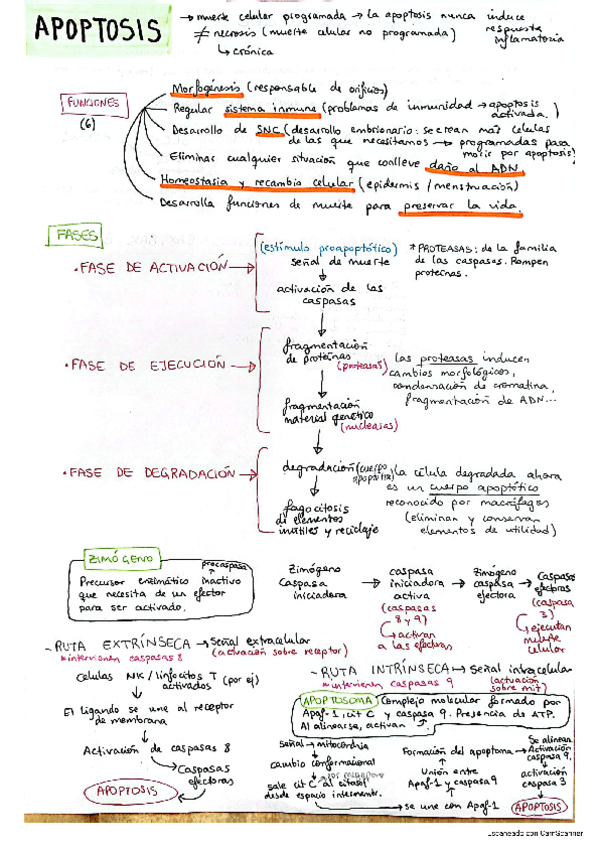 APOPTOSIS
→ muerte celular programada → la apoptosis nunca induce respuesta inflamatoria
≠ necrosis (muerte celular no programada)
↳ crónica
FUNCIONES
(6)
Morfogénesis (responsable de orificios)
Regular sistema inmune (problemas de inmunidad → apoptosis activada.)
Desarrollo de SNC (desarrollo embrionario: se crean más células
de las que necesitamos → programadas para
morir por apoptosis)
Eliminar cualquier situación que conlleve daño al ADN
Homeostasia y recambio celular (epidermis / menstruación)
Desarrolla funciones de muerte para preservar la vida.
FASES
• FASE DE ACTIVACIÓN →
(estímulo proapoptótico)
señal de muerte
↓
activación de las
caspasas
* PROTEASAS: de la familia
de las caspasas. Rompen
proteínas.
• FASE DE EJECUCIÓN →
fragmentación
de proteínas
(proteasas)
↓
fragmentación
material genético
(nucleasas)
Las proteasas inducen
cambios morfológicos,
condensación de cromatina,
fragmentación de ADN...
• FASE DE DEGRADACIÓN →
degradación (cuerpo
apoptótico)
↓
fagocitosis
de elementos
inútiles y reciclaje
La célula degradada ahora
es un cuerpo apoptótico
reconocido por macrófagos
(eliminan y conservan
elementos de utilidad)
ZIMÓGENO
procaspasa
Precursor enzimático inactivo
que necesita de un efector
para ser activado.
Zimógeno
Caspasa
iniciadora
→ caspasa
iniciadora
activa
(caspasas
8 y 9)
↳ activan
a las efectoras
→ Zimógeno
caspasa
efectora
→ Caspasas
efectoras
(caspasa
3)
↳ ejecutan
muerte
celular
- RUTA EXTRÍNSECA → Señal extracelular
* intervienen caspasas 8
(activación sobre receptor)
Células NK / linfocitos T (por ej)
activados
↓
El ligando se une al receptor
de membrana
↓
Activación de caspasas 8
↳ Caspasas
efectoras
APOPTOSIS
- RUTA INTRÍNSECA → Señal intracelular
* intervienen caspasas 9
(activación
sobre mit)
APOPTOSOMA
Complejo molecular formado por
Apaf-1, cit C y caspasa 9. Presencia de ATP.
Al alinearse, activan ↑.
Señal → mitocondria
↓
cambio conformacional
↓
sale cit C al citosol
desde espacio intermembr.
→ se une con Apaf-1
Unión entre
Apaf-1 y caspasa 9
↑
Formación del apoptoma →
Se alinean
Activación
caspasa 9.
↓
activación
caspasa 3
↓
APOPTOSIS
Escaneado con CamScanner